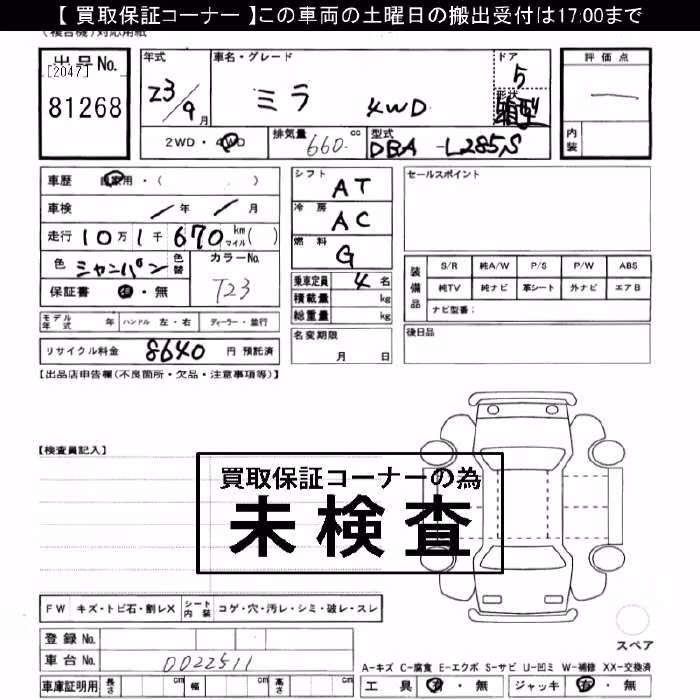 【 買取保証コーナー 】この車両の土曜日の搬出受付は17:00まで
(複合機)対応用紙
出品No.
[2047]
81268
年式
23/9月
車名・グレード
ミラ 4WD
ドア
5
形状
箱型
評価点
内装
2WD・4WD
排気量
660 cc
型式
DBA-L285S
車歴 自家用・( )
車検 / 年 / 月
走行 10万1千670 km マイル( )
色 シャンパン 色替
カラーNo.
T23
保証書 有・無
シフト AT
冷房 AC
燃料 G
乗車定員 4名
積載量 kg
総重量 kg
セールスポイント
装備品
S/R 純A/W P/S P/W ABS
純TV 純ナビ 革シート 外ナビ エアB
ナビ型番:
モデル年式 年 ハンドル 左・右 ディーラー・並行
リサイクル料金 8640 円 預託済
名変期限
月 日
後日品
【出品店申告欄(不良箇所・欠品・注意事項等)】
【検査員記入】
買取保証コーナーの為
未検査
FW キズ・トビ石・割レX シート内装 コゲ・穴・汚レ・シミ・破レ・スレ
登録No.
車台No. 0022511
車庫証明用 長さ cm 幅 cm 高さ cm
スペア
A-キズ C-腐食 E-エクボ S-サビ U-凹ミ W-補修 XX-交換済
工具 有・無 ジャッキ 有・無